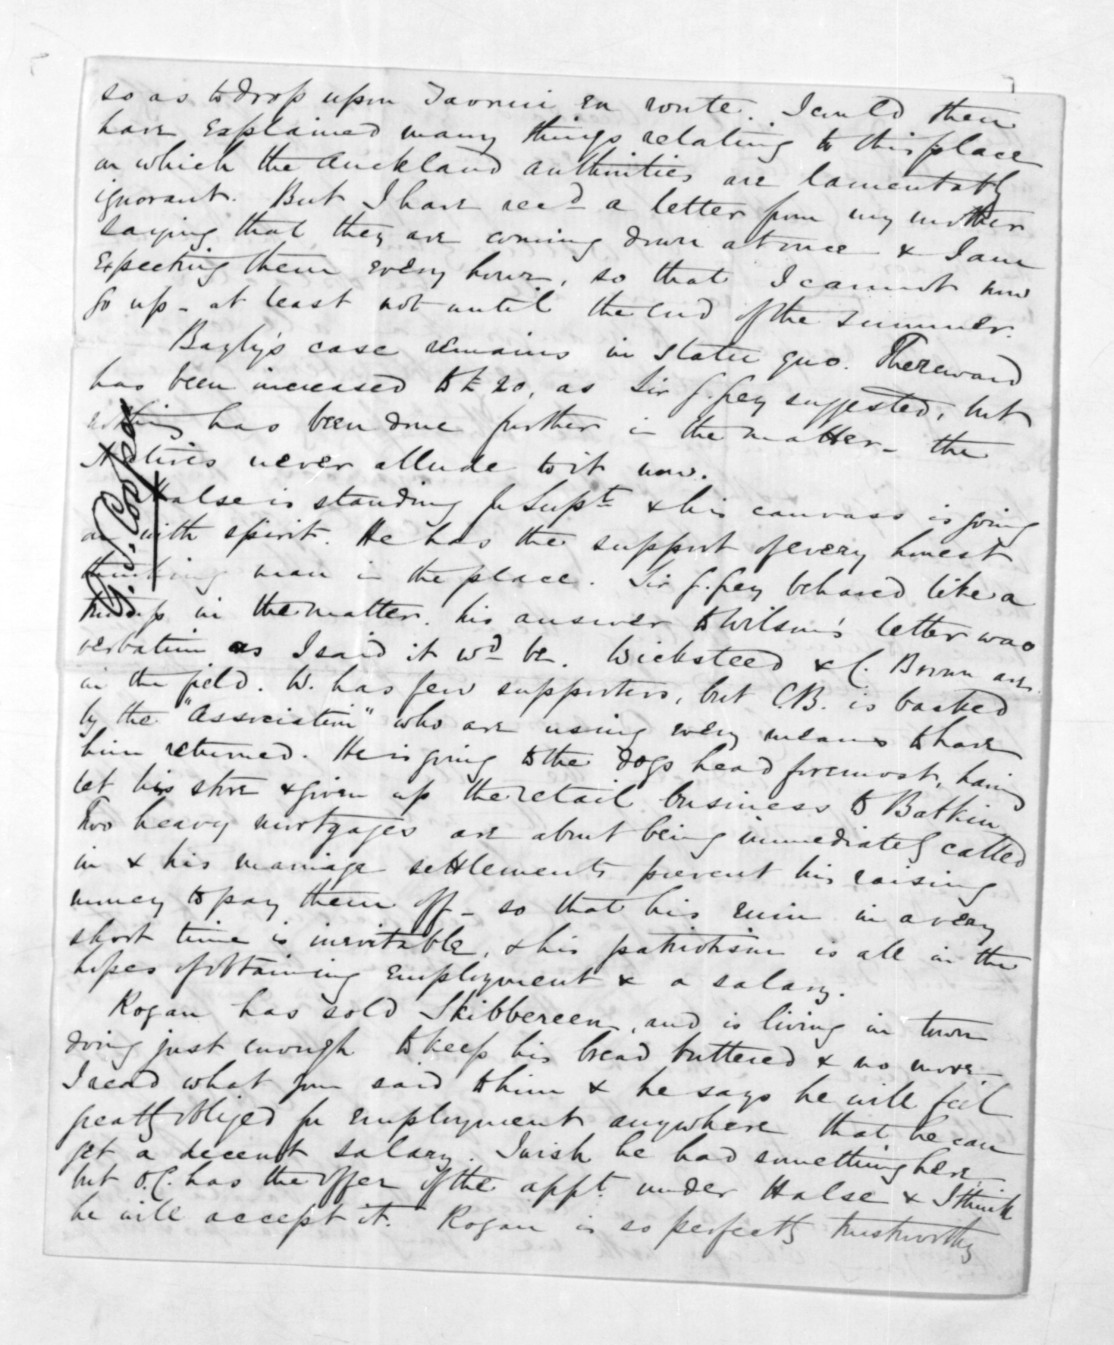 so as to drop upon Taonui en route. I could then
have explained many things relating to this place
on which the Auckland authorities are lamentably
ignorant. But I have recd a letter from my mother
saying that they are coming down at once & I am
expecting them every hour, so that I cannot now
go up - at least not until the end of the summer.
Bayly's case remains in statu quo. The reward
has been increased to £20, as Sir G. Grey suggested, but
nothing has been done further in the matter - the
Natives never allude to it now.
Halse is standing for Supt & his canvass is going
on with spirit. He has the support of every honest
thinking man in the place. Sir G. Grey behaved like a
in the matter. his answer to Wilson's letter was
verbatim as I said it wd be. Wicksteed & C. Brown are
in the field. W. has few supporters, but CB. is backed
by the "Association" who are using every means to have
him returned. He is going to the dogs head foremost, having
let his store & given up the retail business to Batkin
Two heavy mortgages are about being immediately called
in & his marriage settlements prevent his raising
money to pay them off - so that his ruin in a very
short time is inevitable, & his patriotism is all in the
hopes of obtaining employment & a salary.
Rogan has sold Skibbereen, and is living in town
doing just enough to keep his bread buttered & no more -
I read what you said to him & he says he will feel
greatly obliged for employment anywhere that he can
get a decent salary. I wish he had something here,
but O.C. has the offer of the appt under Halse & I think
he will accept it. Rogan is so perfectly trustworthy
G. S. Cooper